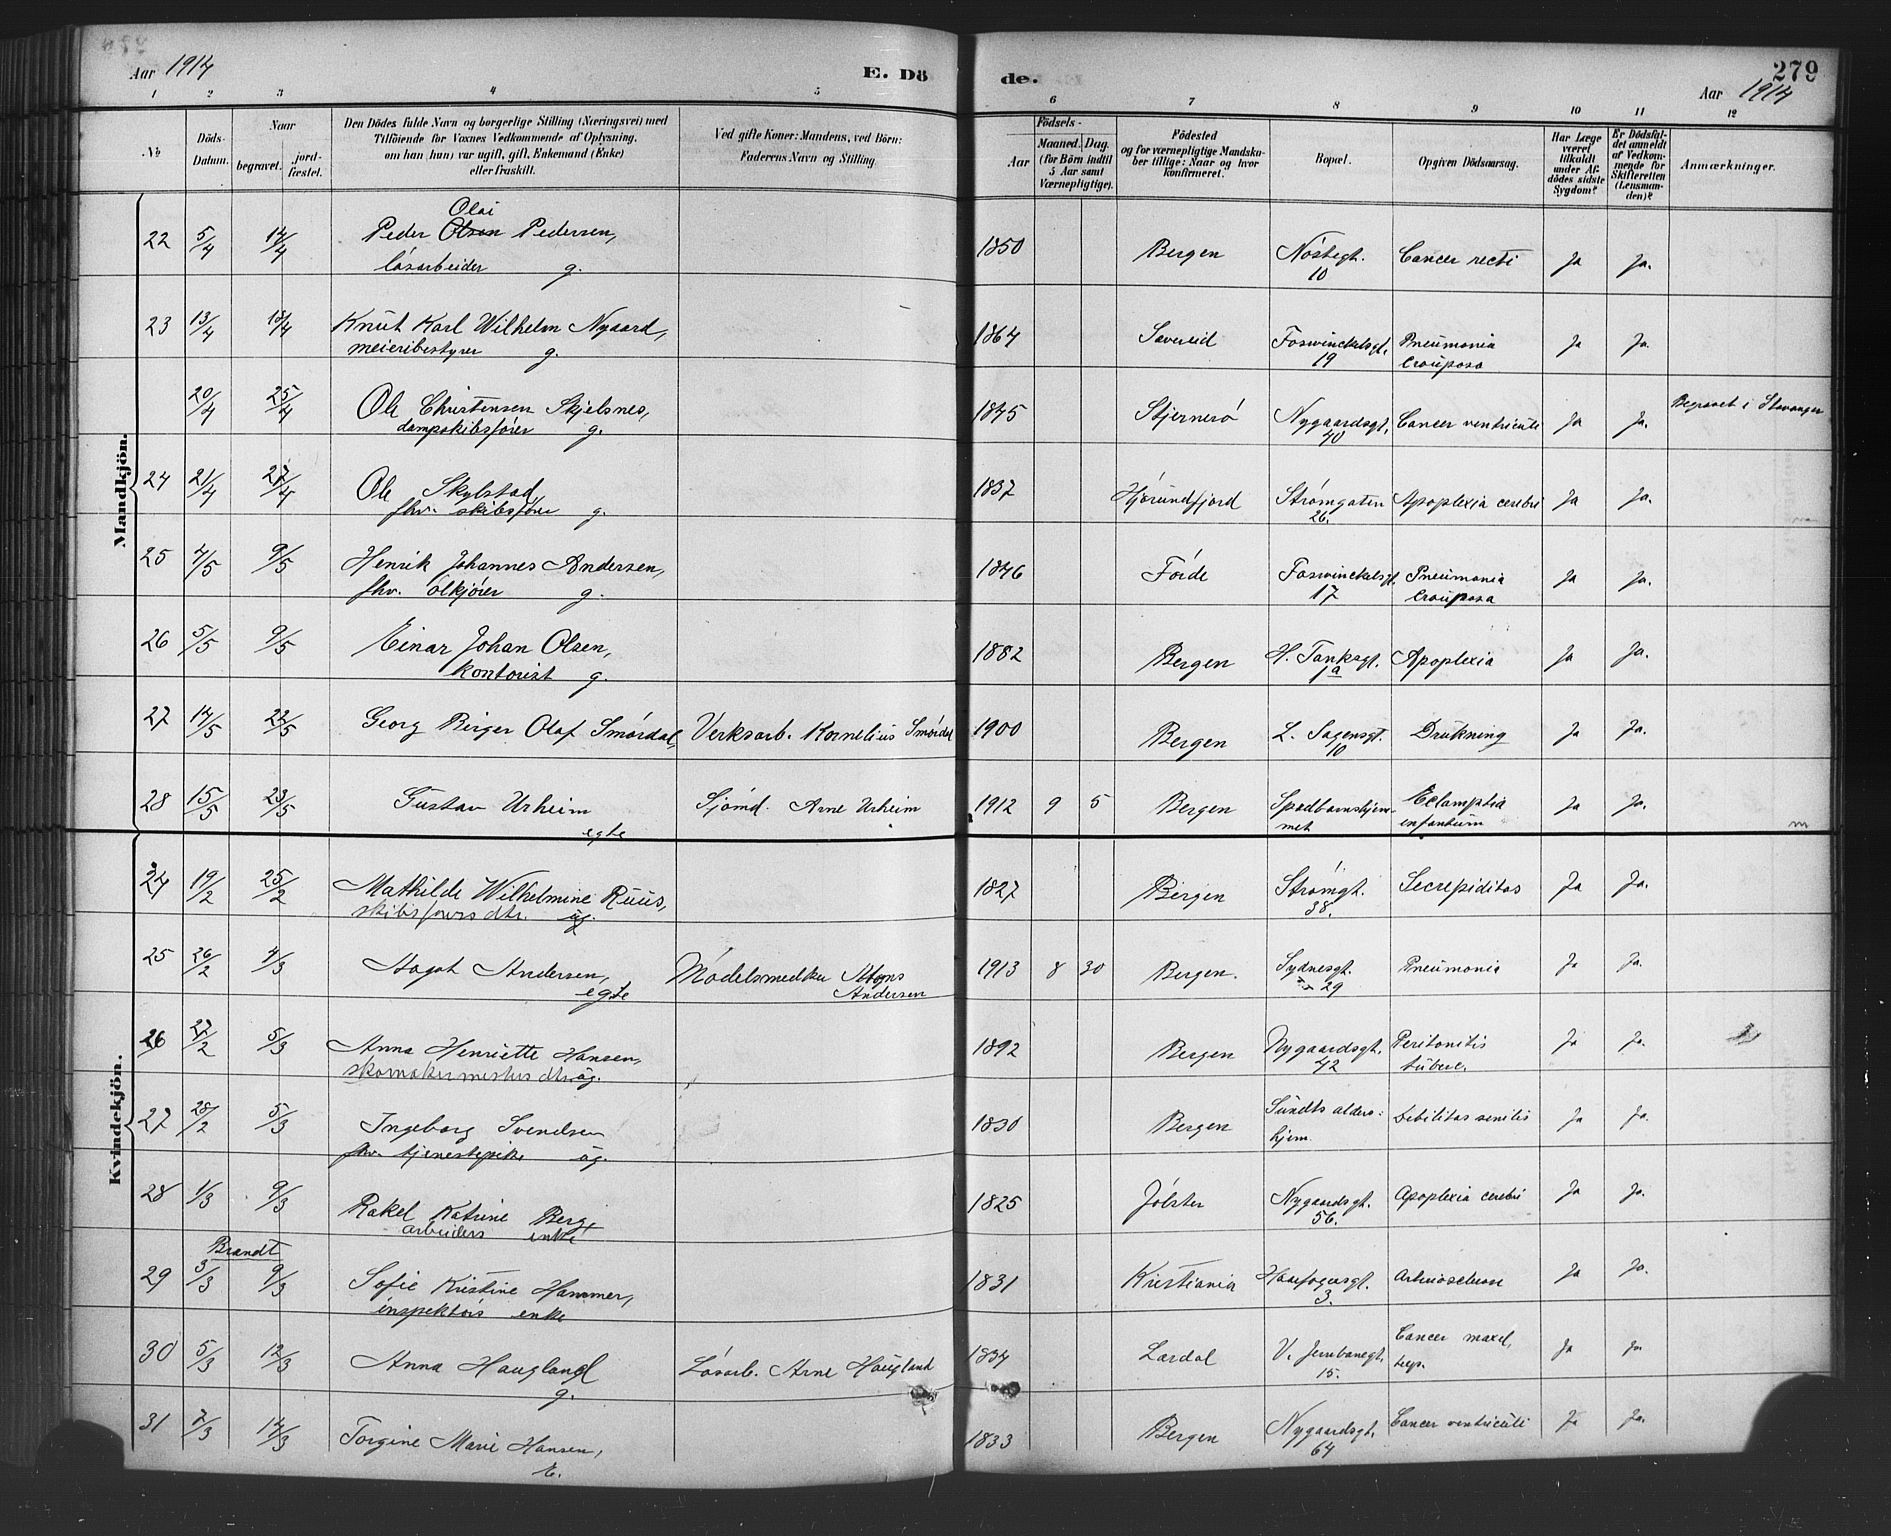 Aar 1914 E. Dö
1 2 3 4 5
№ Döds-Datum. Naar begravet. jord-fæstet. Den Dödes fulde Navn og borgerlige Stilling (Næringsvei) med Tilföiende for Voxnes Vedkommende af Oplysning, om han (hun) var ugift, gift, Enkemand (Enke) eller fraskilt. Ved gifte Koner: Mandens, ved Börn: Faderens Navn og Stilling.
de. 279
Aar 1914
6 7 8 9 10 11 12
Födsels- Aar Maaned. Dag. (for Börn indtil 5 Aar samt Værnepligtige). Födested og for værnepligtige Mandskaber tillige: Naar og hvor konfirmeret. Bopæl. Opgiven Dödsaarsag. Har Læge været tilkaldt under Afdödes sidste Sygdom? Er Dödsfaldet anmeldt af Vedkommende for Skifteretten (Lensmanden)? Anmærkninger.
Mandkjön.
22 5/4 14/4 Peder Olsen Olai Pedersen, løsarbeider g. 1850 Bergen Nøstegt. 10 Cancer recti Ja Ja.
23 13/4 18/4 Knut Karl Wilhelm Nygaard, meieribestyrer g. 1864 Sævereid Foswinckelsgt. 19 Pneumonia crouposa Ja Ja.
20/4 25/4 Ole Christensen Skjelsnes, dampskibsfører g. 1845 Stjernerø Nygaardsgt. 40 Cancer ventriculi Ja Ja. Begravet i Stavanger
24 21/4 27/4 Ole Skylstad fhv. skibsfører g. 1837 Hjørundfjord Strømgaten 26. Apoplexia cerebri Ja Ja.
25 4/5 9/5 Henrik Johannes Andersen, fhv. ølkjører g. 1846 Førde Foswinckelsgt. 17 Pneumonia crouposa Ja Ja.
26 5/5 9/5 Einar Johan Olsen, kontorist g. 1882 Bergen H. Tanksgt. 1a Apoplexia Ja Ja.
27 14/5 22/5 Georg Birger Olaf Smørdal, Verksarb. Kornelius Smørdal 1900 Bergen L. Sagensgt. 10 Drukning Ja Ja.
28 15/5 23/5 Gustav Urheim egte Sjømd. Arne Urheim 1912 9 5 Bergen Spædbarnshjemmet Eclamptia enfantum Ja Ja.
Kvindekjön.
24 19/2 25/2 Mathilde Wilhelmine Ruus, skibsførers dtr. ug. 1827 Bergen Strømgt. 38. Decrepiditas Ja Ja.
25 26/2 4/3 Aagot Andersen, egte Mødelsnedker Mons Andersen 1913 8 30 Bergen. Sydnesgt. 29 Pneumonia Ja Ja.
26 27/2 5/3 Anna Henriette Hansen, skomakermesters dtr ug. 1892 Bergen Nygaardsgt. 42 Peritonitis tuberc. Ja Ja.
27 28/2 5/3 Ingeborg Svendsen fhv. tjenestepike ug. 1830 Bergen Sundts alders: hjem. Debilitas senilis Ja Ja.
28 1/3 9/3 Rakel Katrine Berge arbeiders enke 1825 Jølster Nygaardsgt. 56. Apoplexia cerebri Ja Ja.
Brandt
29 3/3 9/3 Sofie Kristine Hammer, inspektørs enke 1831 Kristiania Haarfagersgt. 3. Ja Ja.
30 5/3 12/3 Anna Haugland g. Løsarb. Arne Haugland 1834 Lærdal V. Jernbanegt. 15. Cancer Ja Ja
31 7/3 14/3 Torgine Marie Hansen, E. 1833 Bergen Nygaardsgt. 64 Cancer ventriculi Ja Ja.